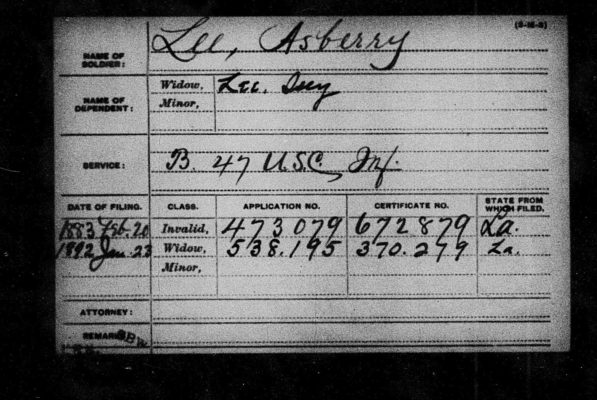 (3-16-3)
NAME OF SOLDIER: Lee, Asberry
NAME OF DEPENDENT: Widow, Lee,
Minor,
SERVICE: B. 47 U.S.C. Inf.
DATE OF FILING. CLASS. APPLICATION NO. CERTIFICATE NO. STATE FROM WHICH FILED.
1883 Feb. 20 Invalid, 473079 672879 La.
1892 23 Widow, 538.195 370.279 La.
Minor,
ATTORNEY:
REMARKS: